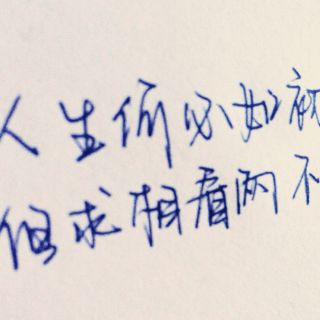 人生何必如初
但求相看两不